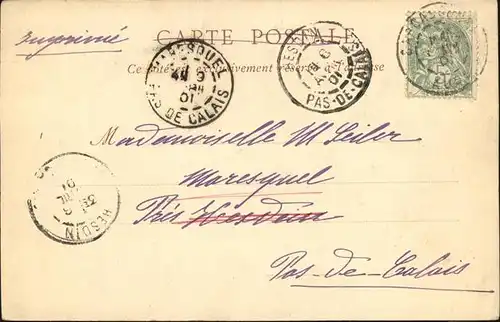 Imprimé
CARTE POSTALE
Ce côté est exclusivement réservé à l'adresse
MARESQUEL
PAS DE CALAIS
01
HESDIN
PAS-DE-CALAIS
01
Mademoiselle M Seiler
Maresquel
Près Hesdin
Pas-de-Calais
HESDIN
01